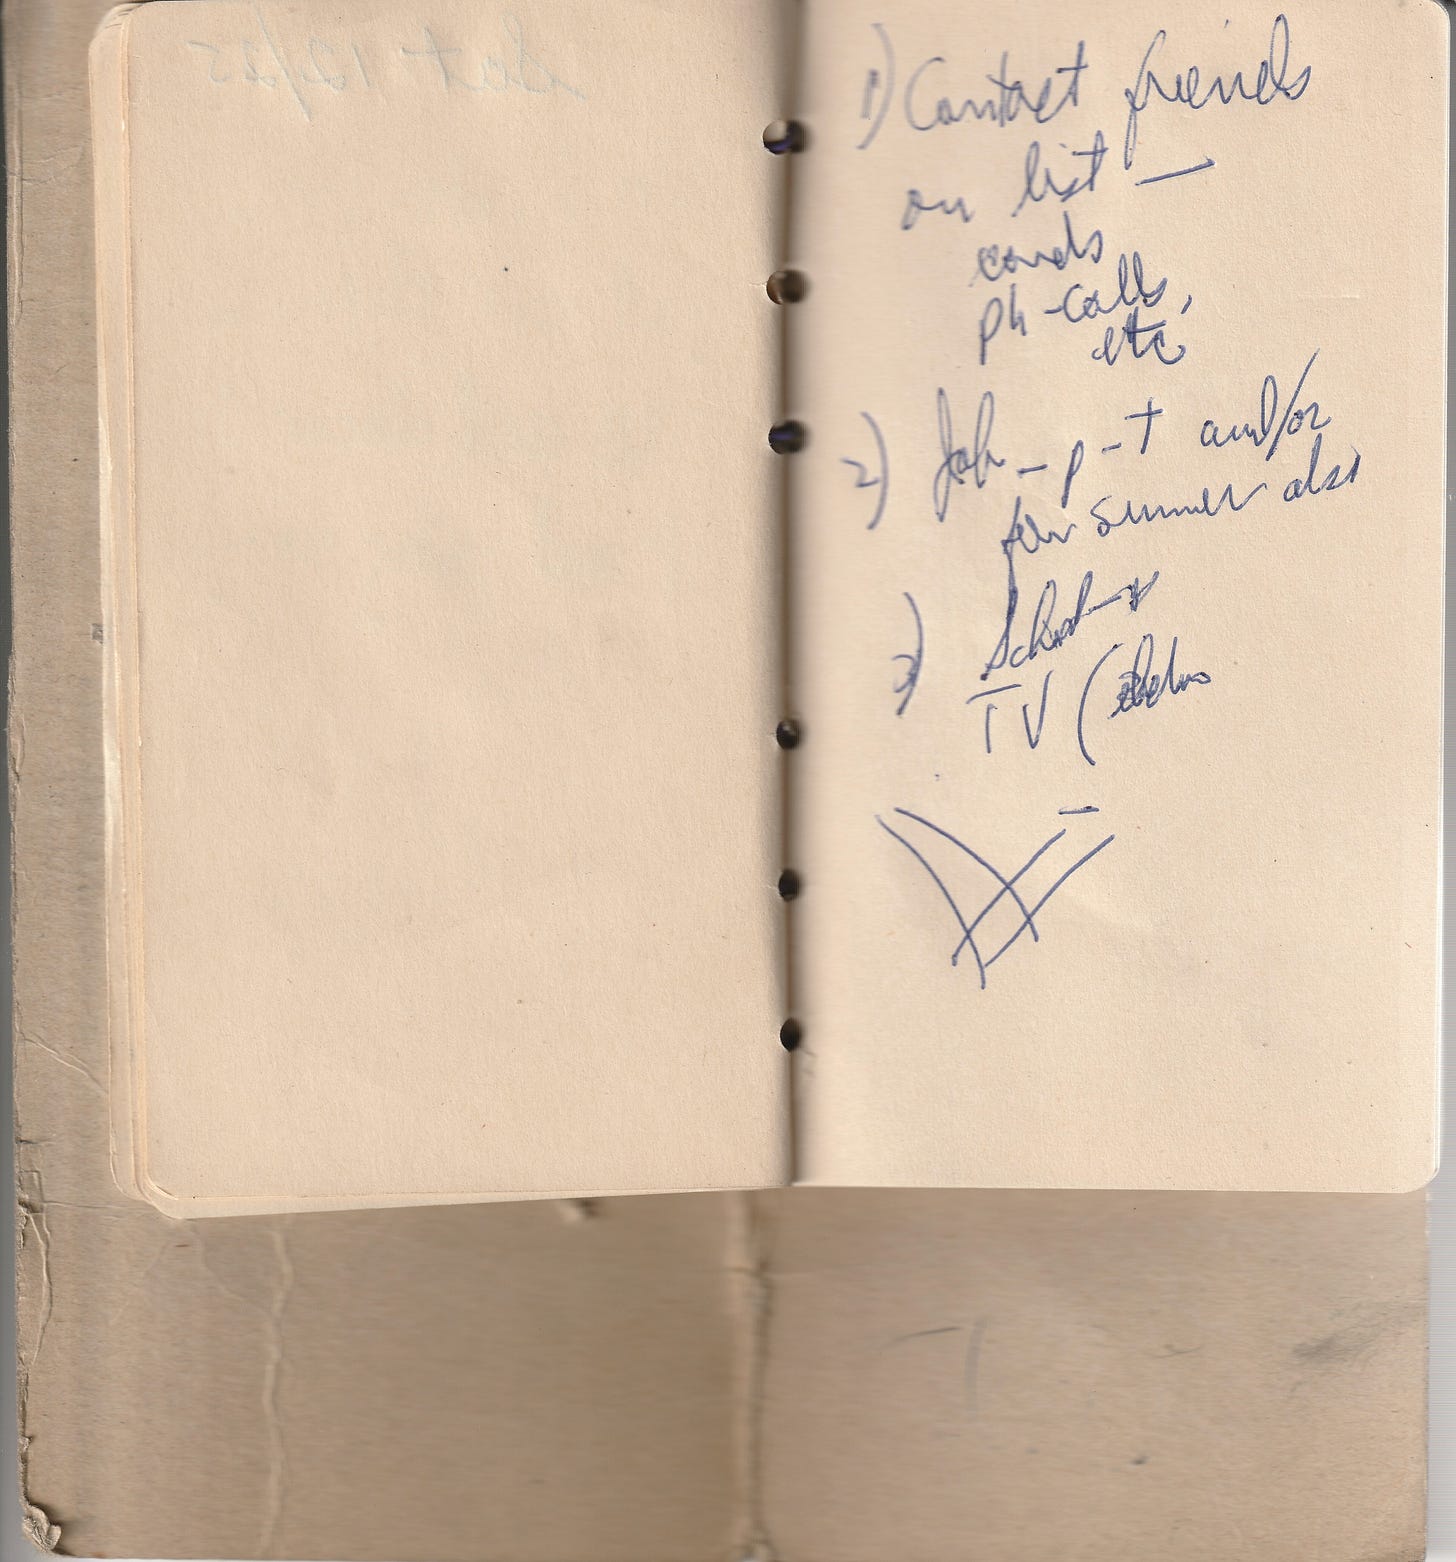 Sat 12/25
1) Contact friends
on list —
cards
ph-calls,
etc
2) Job – p-t and/or
for summer also
3)
TV (